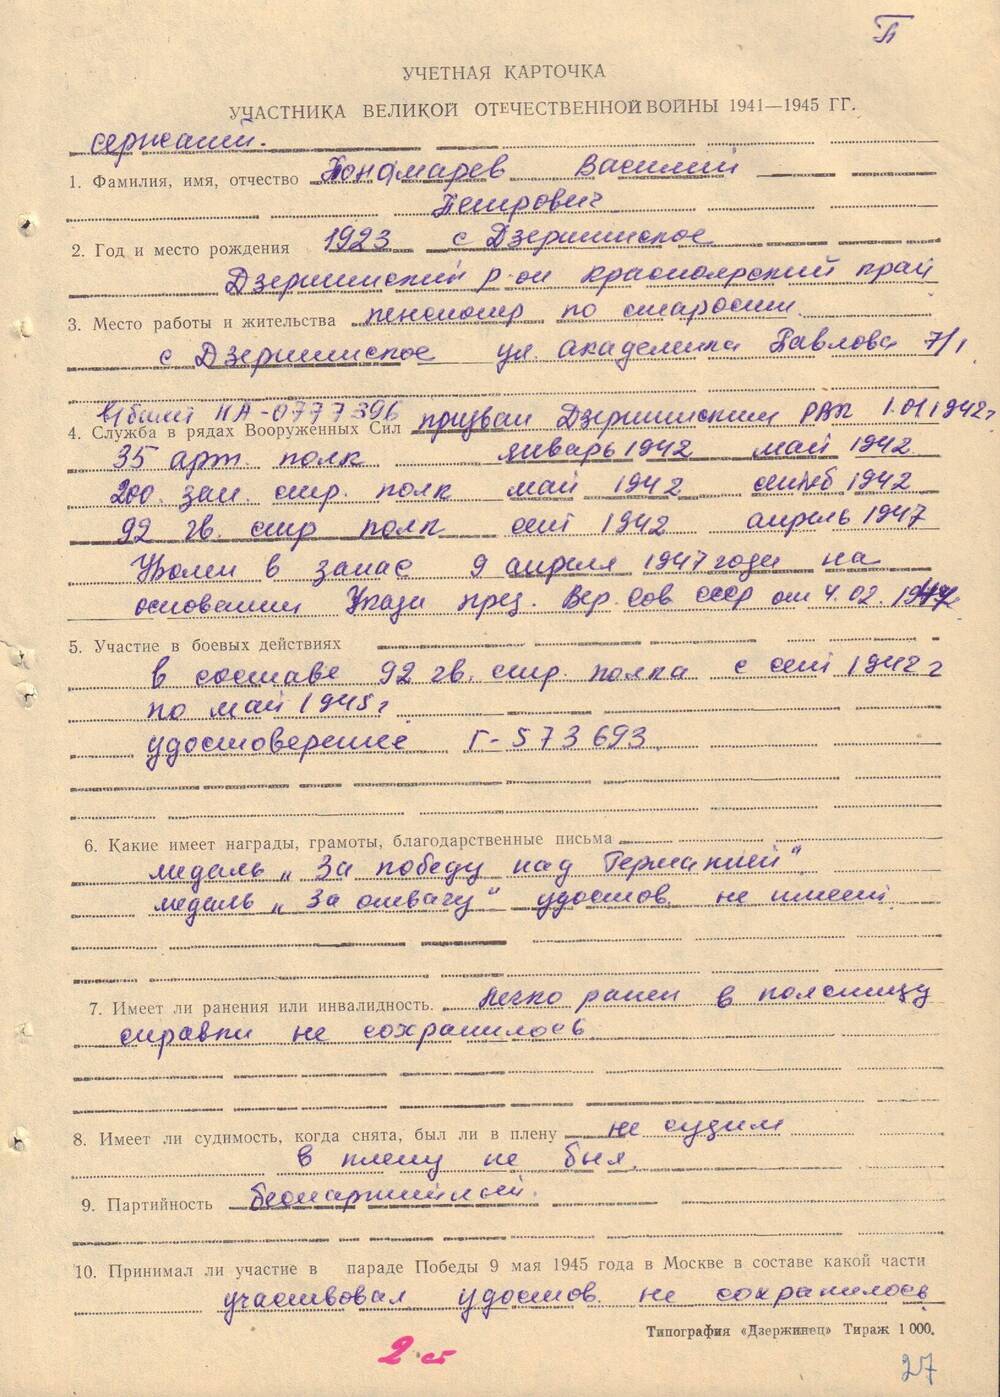 П
УЧЕТНАЯ КАРТОЧКА
УЧАСТНИКА ВЕЛИКОЙ ОТЕЧЕСТВЕННОЙ ВОЙНЫ 1941—1945 ГГ.
сержант.
1. Фамилия, имя, отчество Пономарев Василий
Петрович
2. Год и место рождения 1923 с Дзержинское
Дзержинский р-он Красноярский край
3. Место работы и жительства пенсионер по старости.
с Дзержинское ул. академика Павлова 7/1
в/билет НА-0777396
4. Служба в рядах Вооруженных Сил призван Дзержинским РВК 1.01 1942г
35 арт. полк январь 1942 май 1942
200. зап. стр. полк май 1942 сентб 1942
92 гв. стр полк сент 1942 апрель 1947
Уволен в запас 9 апреля 1947 года на
основании Указа през. Вер. Сов СССР от 4.02.
5. Участие в боевых действиях
в составе 92 гв. стр. полка с сент 1942 г
по май 1945 г
удостоверение Г-573693
6. Какие имеет награды, грамоты, благодарственные письма
медаль „За победу над Германией",
медаль „За отвагу" удостов. не имеет
7. Имеет ли ранения или инвалидность. легко ранен в поясницу
справки не сохранилось
8. Имеет ли судимость, когда снята, был ли в плену не судим
в плену не был.
9. Партийность беспартийный.
10. Принимал ли участие в параде Победы 9 мая 1945 года в Москве в составе какой части
участвовал удостов. не сохранилось
Типография «Дзержинец» Тираж 1 000.
2 ст
27